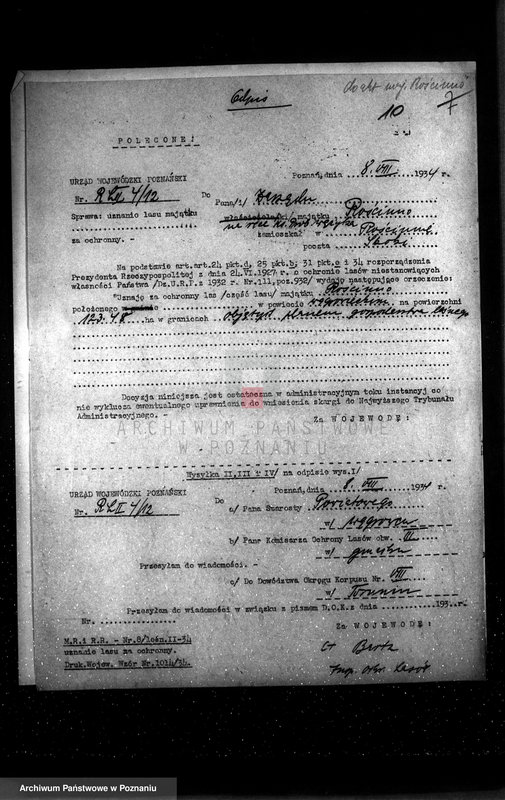 Odpis
do akt maj. Rościnno
10
7
POLECONE!
Poznań, dnia 8. VIII 1934 r.
URZĄD WOJEWÓDZKI POZNAŃSKI
Nr. RLII 4/12
Do
Sprawa: uznanie lasu majątku
Pana/i/ Zarządu
właściciela/i/ majątku Rościnno
za ochronny. -
zamieszkał w Rościnnie
poczta Skoki
Na podstawie art.art.24 pkt.d, 25 pkt.b; 31 pkt.e i 34 rozporządzenia
Prezydenta Rzeczypospolitej z dnia 24.VI.1927 r.o ochronie lasów niestanowiących
własności Państwa /Dz.U.R.P.z 1932 r. Nr.111,poz.932/ wydaję następujące orzeczenie:
"Uznaję za ochronny las /część lasu/ majątku Rościnno
położonego w gminie w powiecie wągrowieckim na powierzchni
123.48 ha w granicach objętych planem gospodarstwa leśnego
Decyzja niniejsza jest ostateczna w administracyjnym toku instancyj co
nie wyklucza ewentualnego uprawnienia do wniesienia skargi do Najwyższego Trybunału
Administracyjnego.
Za WOJEWODĘ:
ARCHIWUM PAŃSTWOWE
W POZNANIU
Wysyłka II,III i IV/ na odpisie wys.I/
Poznań, dnia 8. VIII 1934 r.
URZĄD WOJEWÓDZKI POZNAŃSKI
Nr. RLII 4/12
Do
a/ Pana Starosty Powiatowego
w/ Wągrowcu
b/ Pana Komisarza Ochrony Lasów obw. III
w/ Gnieźnie
Przesyłam do wiadomości. -
c/ Do Dowództwa Okręgu Korpusu Nr. VIII
w/ Toruniu
Przesyłam do wiadomości w związku z pismem D.O.K. z dnia 193 r.
Nr.
Za WOJEWODĘ:
M.R.i R.R. - Nr.8/leśn.II-34
uznanie lasu na ochronny.
Druk.Wojew. Wzór Nr.1014/34.
Insp. Ochr. Lasów
Archiwum Państwowe w Poznaniu